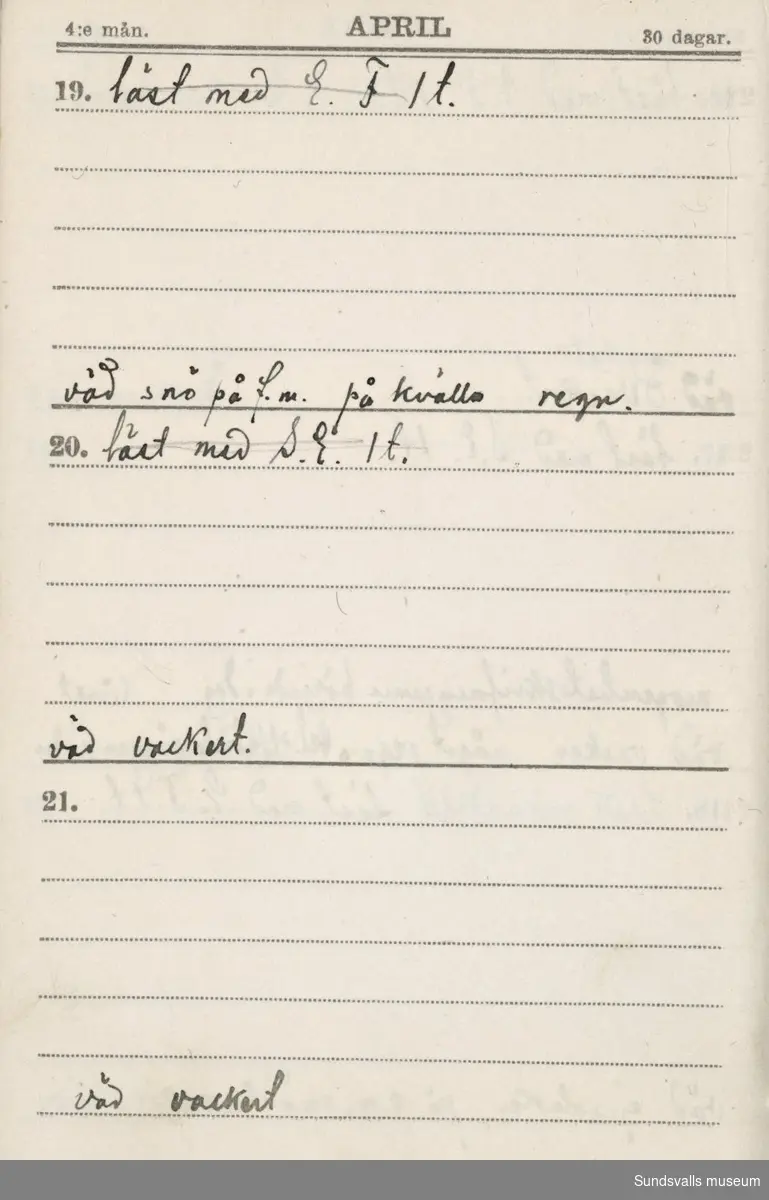 4:e mån. APRIL 30 dagar.
19. läst med E. F 1 t.
väd snö på f.m. på kvälls regn.
20. läst med S.E. 1 t.
väd vackert.
21.
väd vackert
Sundsvalls museum